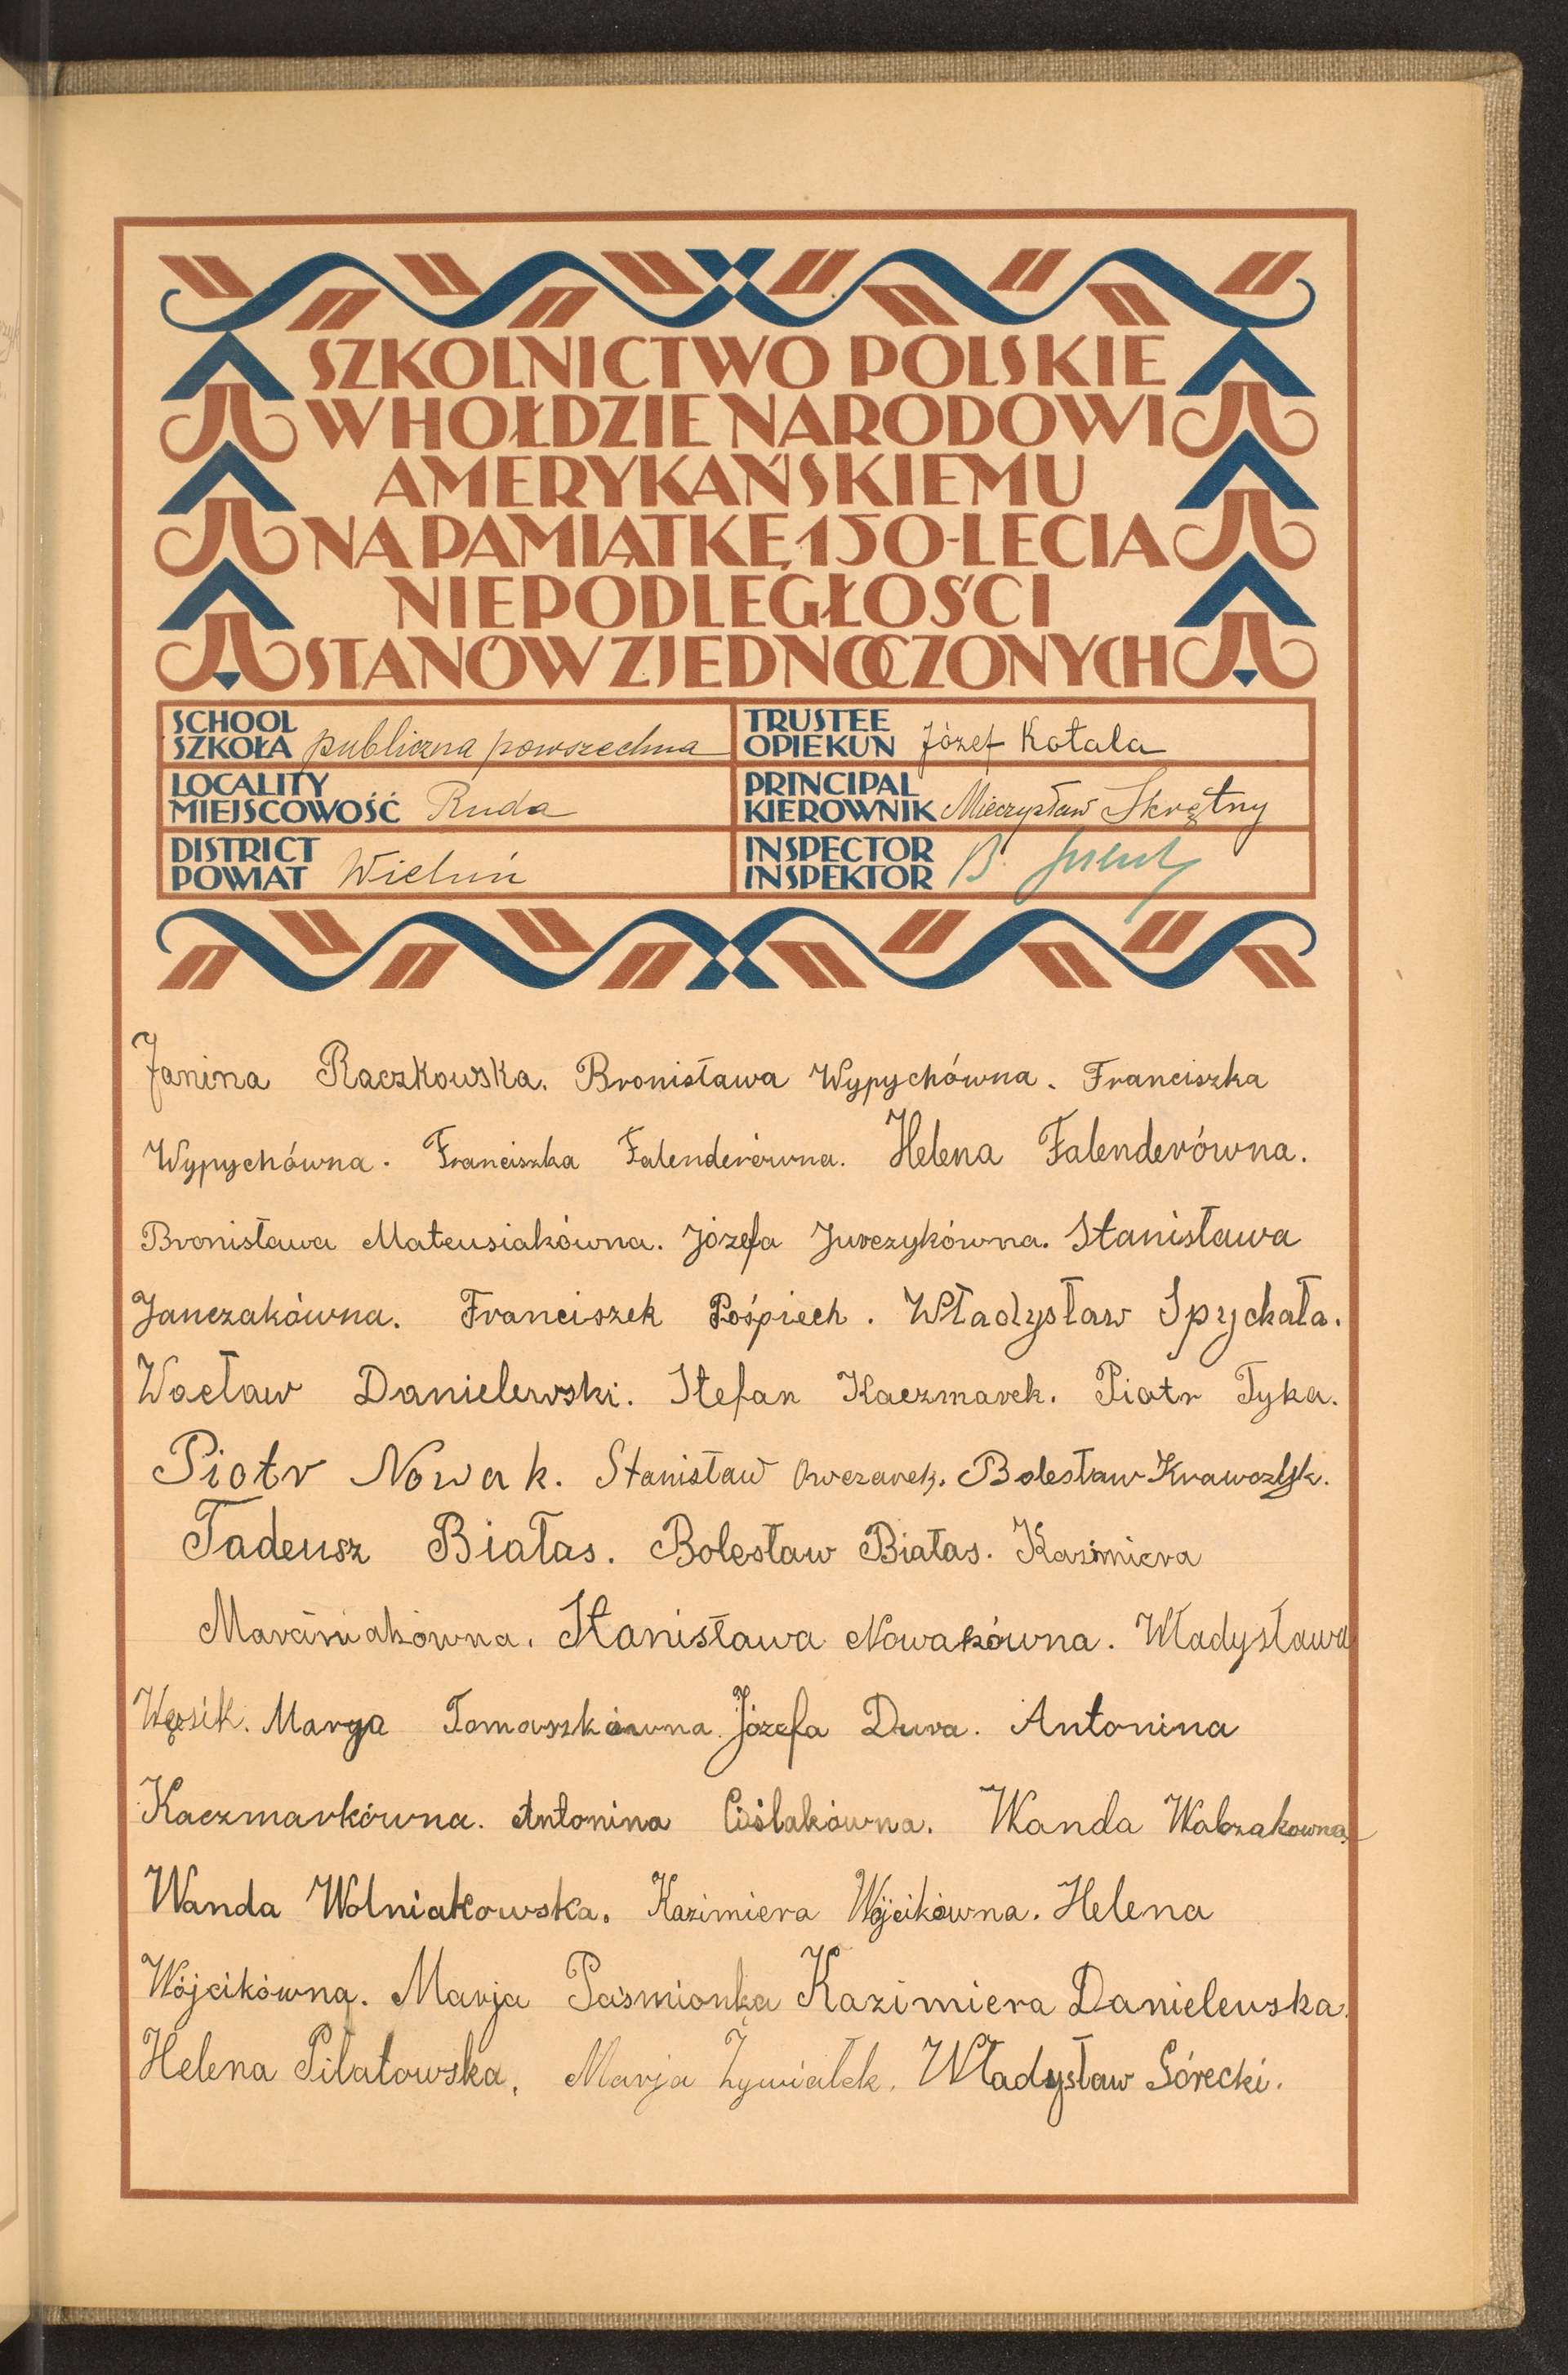 SZKOLNICTWO POLSKIE
W HOŁDZIE NARODOWI
AMERYKAŃSKIEMU
NA PAMIĄTKĘ 150-LECIA
NIEPODLEGŁOŚCI
STANÓW ZJEDNOCZONYCH
SCHOOL
SZKOŁA publiczna powszechna
TRUSTEE
OPIEKUN Józef Kotala
LOCALITY
MIEJSCOWOŚĆ Ruda
PRINCIPAL
KIEROWNIK Mieczysław Skrętny
DISTRICT
POWIAT Wieluń
INSPECTOR
INSPEKTOR B.
Janina Raczkowska. Bronisława Wypychówna. Franciszka
Wypychówna. Franciszka Falenderówna. Helena Falenderówna.
Bronisława Mateusiakówna. Józefa Jurczykówna. Stanisława
Janczakówna. Franciszek Pośpiech. Władysław Spychała.
Wacław Danielewski. Stefan Kaczmarek. Piotr Tyka.
Piotr Nowak. Stanisław Owczarek. Bolesław Krawczyk.
Tadeusz Białas. Bolesław Białas. Kazimiera
Marciniakówna. Stanisława Nowakówna. Władysława
Wąsik. Marya Tomaszkówna Józefa Dura. Antonina
Kaczmarkówna. Antonina Cieślakówna. Wanda Walczakowna
Wanda Wolniakowska. Kazimiera Wójcikówna. Helena
Wójcikówna. Marja Pasmionka Kazimiera Danielewska.
Helena Piłatowska. Marja Żywiałek. Władysław Górecki.